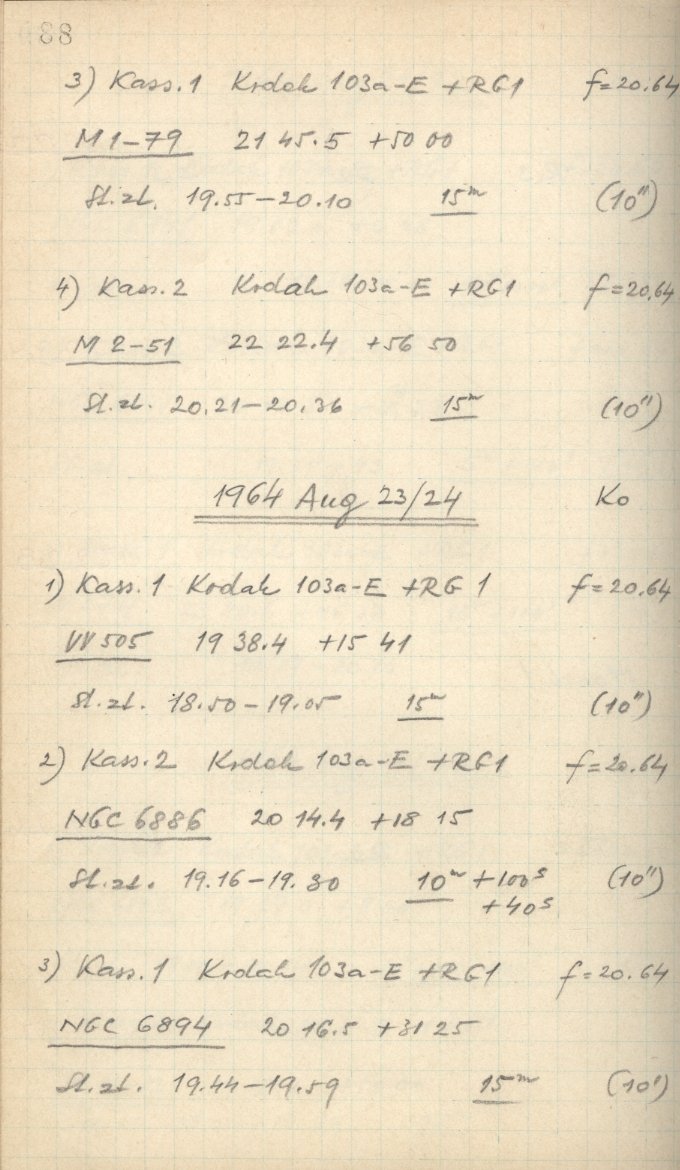 88
3) Kass.1 Kodak 103a-E +RG1 f=20.64
M 1-79 21 45.5 +50 00
St.zt. 19.55-20.10 15m (10")
4) Kass.2 Kodak 103a-E +RG1 f=20.64
M 2-51 22 22.4 +56 50
St.zt. 20.21-20.36 15m (10")
1964 Aug 23/24 Ko
1) Kass.1 Kodak 103a-E +RG 1 f=20.64
VV 505 19 38.4 +15 41
St.zt. 18.50-19.05 15m (10")
2) Kass.2 Kodak 103a-E +RG1 f=20.64
NGC 6886 20 14.4 +18 15
St.zt. 19.16-19.30 10m +100s (10")
+40s
3) Kass.1 Kodak 103a-E +RG1 f=20.64
NGC 6894 20 16.5 +31 25
St.zt. 19.44-19.59 15m (10')